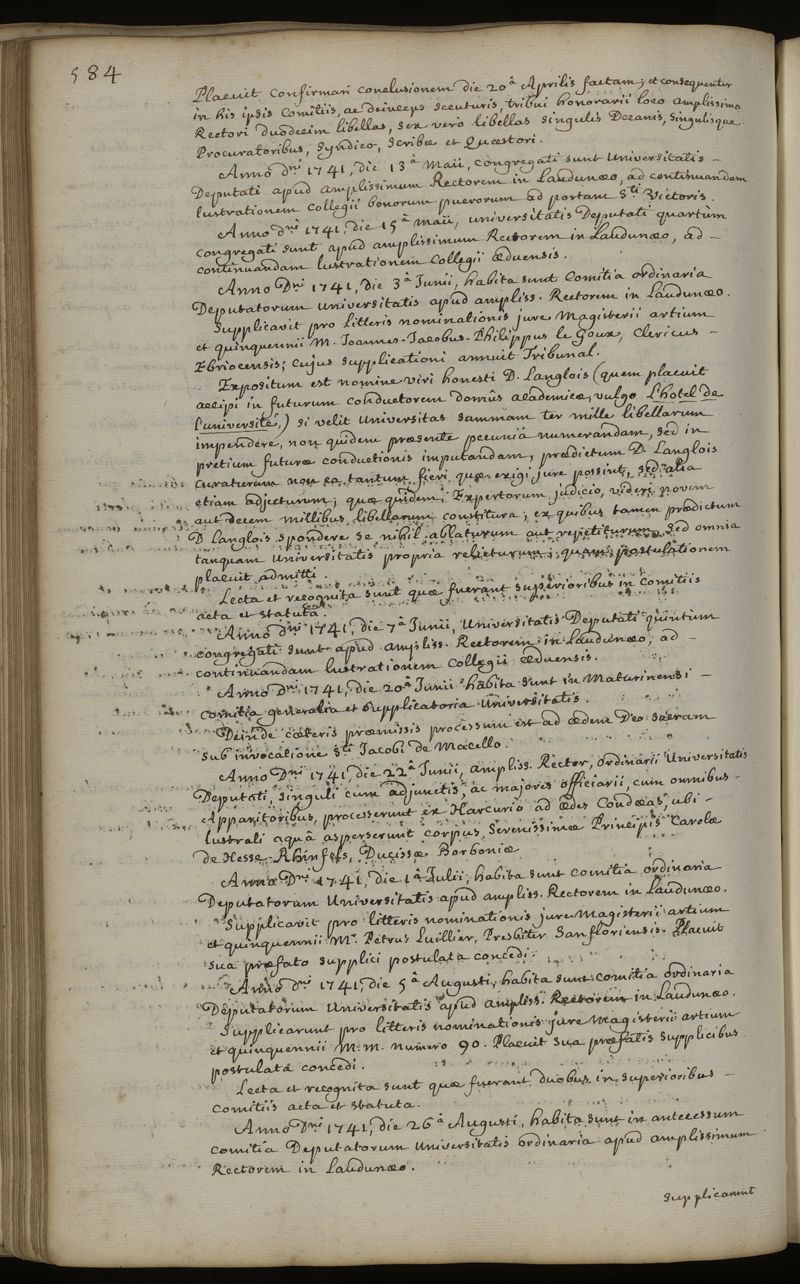 584
Placuit confirmari conclusionem die 20â Aprilis factam; et consequenter
in his ipsis Comitiis, ac deinceps secuturis, tribui honorarii loco amplissimo
Rectori duodecim libellas, sex vero libellas singulis Decanis, Singulisque
Procuratoribus, Syndico, Scribæ et Quæstori.
Anno Dni 1741, die 13â Maii, congregati sunt Universitatis –
Deputati apud amplissimum Rectorem in Laudunæo, ad continuandam
lustrationem collegii bonorum puerorum ad portam Sti Victoris.
Anno Dni 1741, die 15â maii, universitatis Deputati quartùm
congregati sunt apud amplissimum Rectorem in Laudunæo, ad –
continuandam lustrationem Collegii Æduensis.
Anno Dni 1741, die 3â Junii, habita sunt Comitia ordinaria
Deputatorum universitatis apud ampliss. Rectorem in Laudunæo.
Supplicavit pro Litteris nominationis jure Magisterii artium
et quinquennii M. Joannes-Jacobus-Philippus le Goux, Clericus –
Ebriocensis; cujus supplicationi annuit Tribunal.
Expositum est nomine viri honesti D. Langlois (quem placuit
accipi in futurum conductorem domûs academicæ, vulgo L'hotel de
l'université,) si velit Universitas summam ter mille libellarum
impendere, non quidem præsente pecuniâ numerandam, sed in
pretium futuræ conductionis imputandam, prædictum D. Langlois
curaturum non ea tantum fieri quæ exigi jure possint, sed alia
etiam adjecturum; quæ quidem, Expertorum judicio, videri novem
aut decem millibus libellarum constitura; ex quibus tamen prædictum
D Langlois spondere se nihil ablaturum aut repetiturum sed omnia
tanquam Universitatis propria relicturum; quam postulationem
placuit admitti.
Lecta et recognita sunt quæ fuerant superioribus in comitiis
acta et statuta.
Anno Dni 1741, die 7â Junii, Universitatis Deputati quintùm
congregati sunt apud ampliss. Rectorem in Laudunæo, ad –
continuandam lustrationem Collegii æduensis.
Anno Dni 1741, die 20â Junii habita sunt in Maturinensi –
comitia generalia et Supplicatoria Universitatis.
Deinde cæteris præmissis processum est ad ædem Deo sacram
sub invocatione Sti Jacobi de Macello.
Anno Dni 1741, die 22â Junii, ampliss. Rector, ordinarii Universitatis
Deputati, singuli cum adjunctis, ac majores officiarii, cum omnibus –
Apparitoribus, processerunt ex Harcurio ad ædes Condæas, ubi –
lustrali aquâ asperserunt corpus Serenissimæ Principis Carolæ
de Hesse-Rhinfels, Ducissæ Borboniæ
Anno Dni 1741, die 1â Julii, habita sunt comitia ordinaria
Deputatorum Universitatis apud ampliss. Rectorem in Laudunæo.
Supplicavit pro litteris nominationis jure Magisterii artium
et quinquennii Mr. Petrus Luillier, Presbiter Sanfloriensis. Placuit
sua præfato supplici postulata concedi.
Anno Dni 1741, die 5â Augusti, habita sunt comitia ordinaria
Deputatorum Universitatis apud ampliss. Rectorem in Laudunæo.
Supplicarunt pro litteris nominationis jure Magisterii artium
et quinquennii M.M. numero 90. Placuit sua præfatis supplicibus
postulata concedi.
Lecta et recognita sunt quæ fuerant duobus in superioribus –
comitiis acta et statuta.
Anno Dni 1741, die 26â Augusti, habita sunt in antecessum
comitia Deputatorum Universitatis ordinaria apud amplissimum
Rectorem in Laudunæo.
Supplicarunt